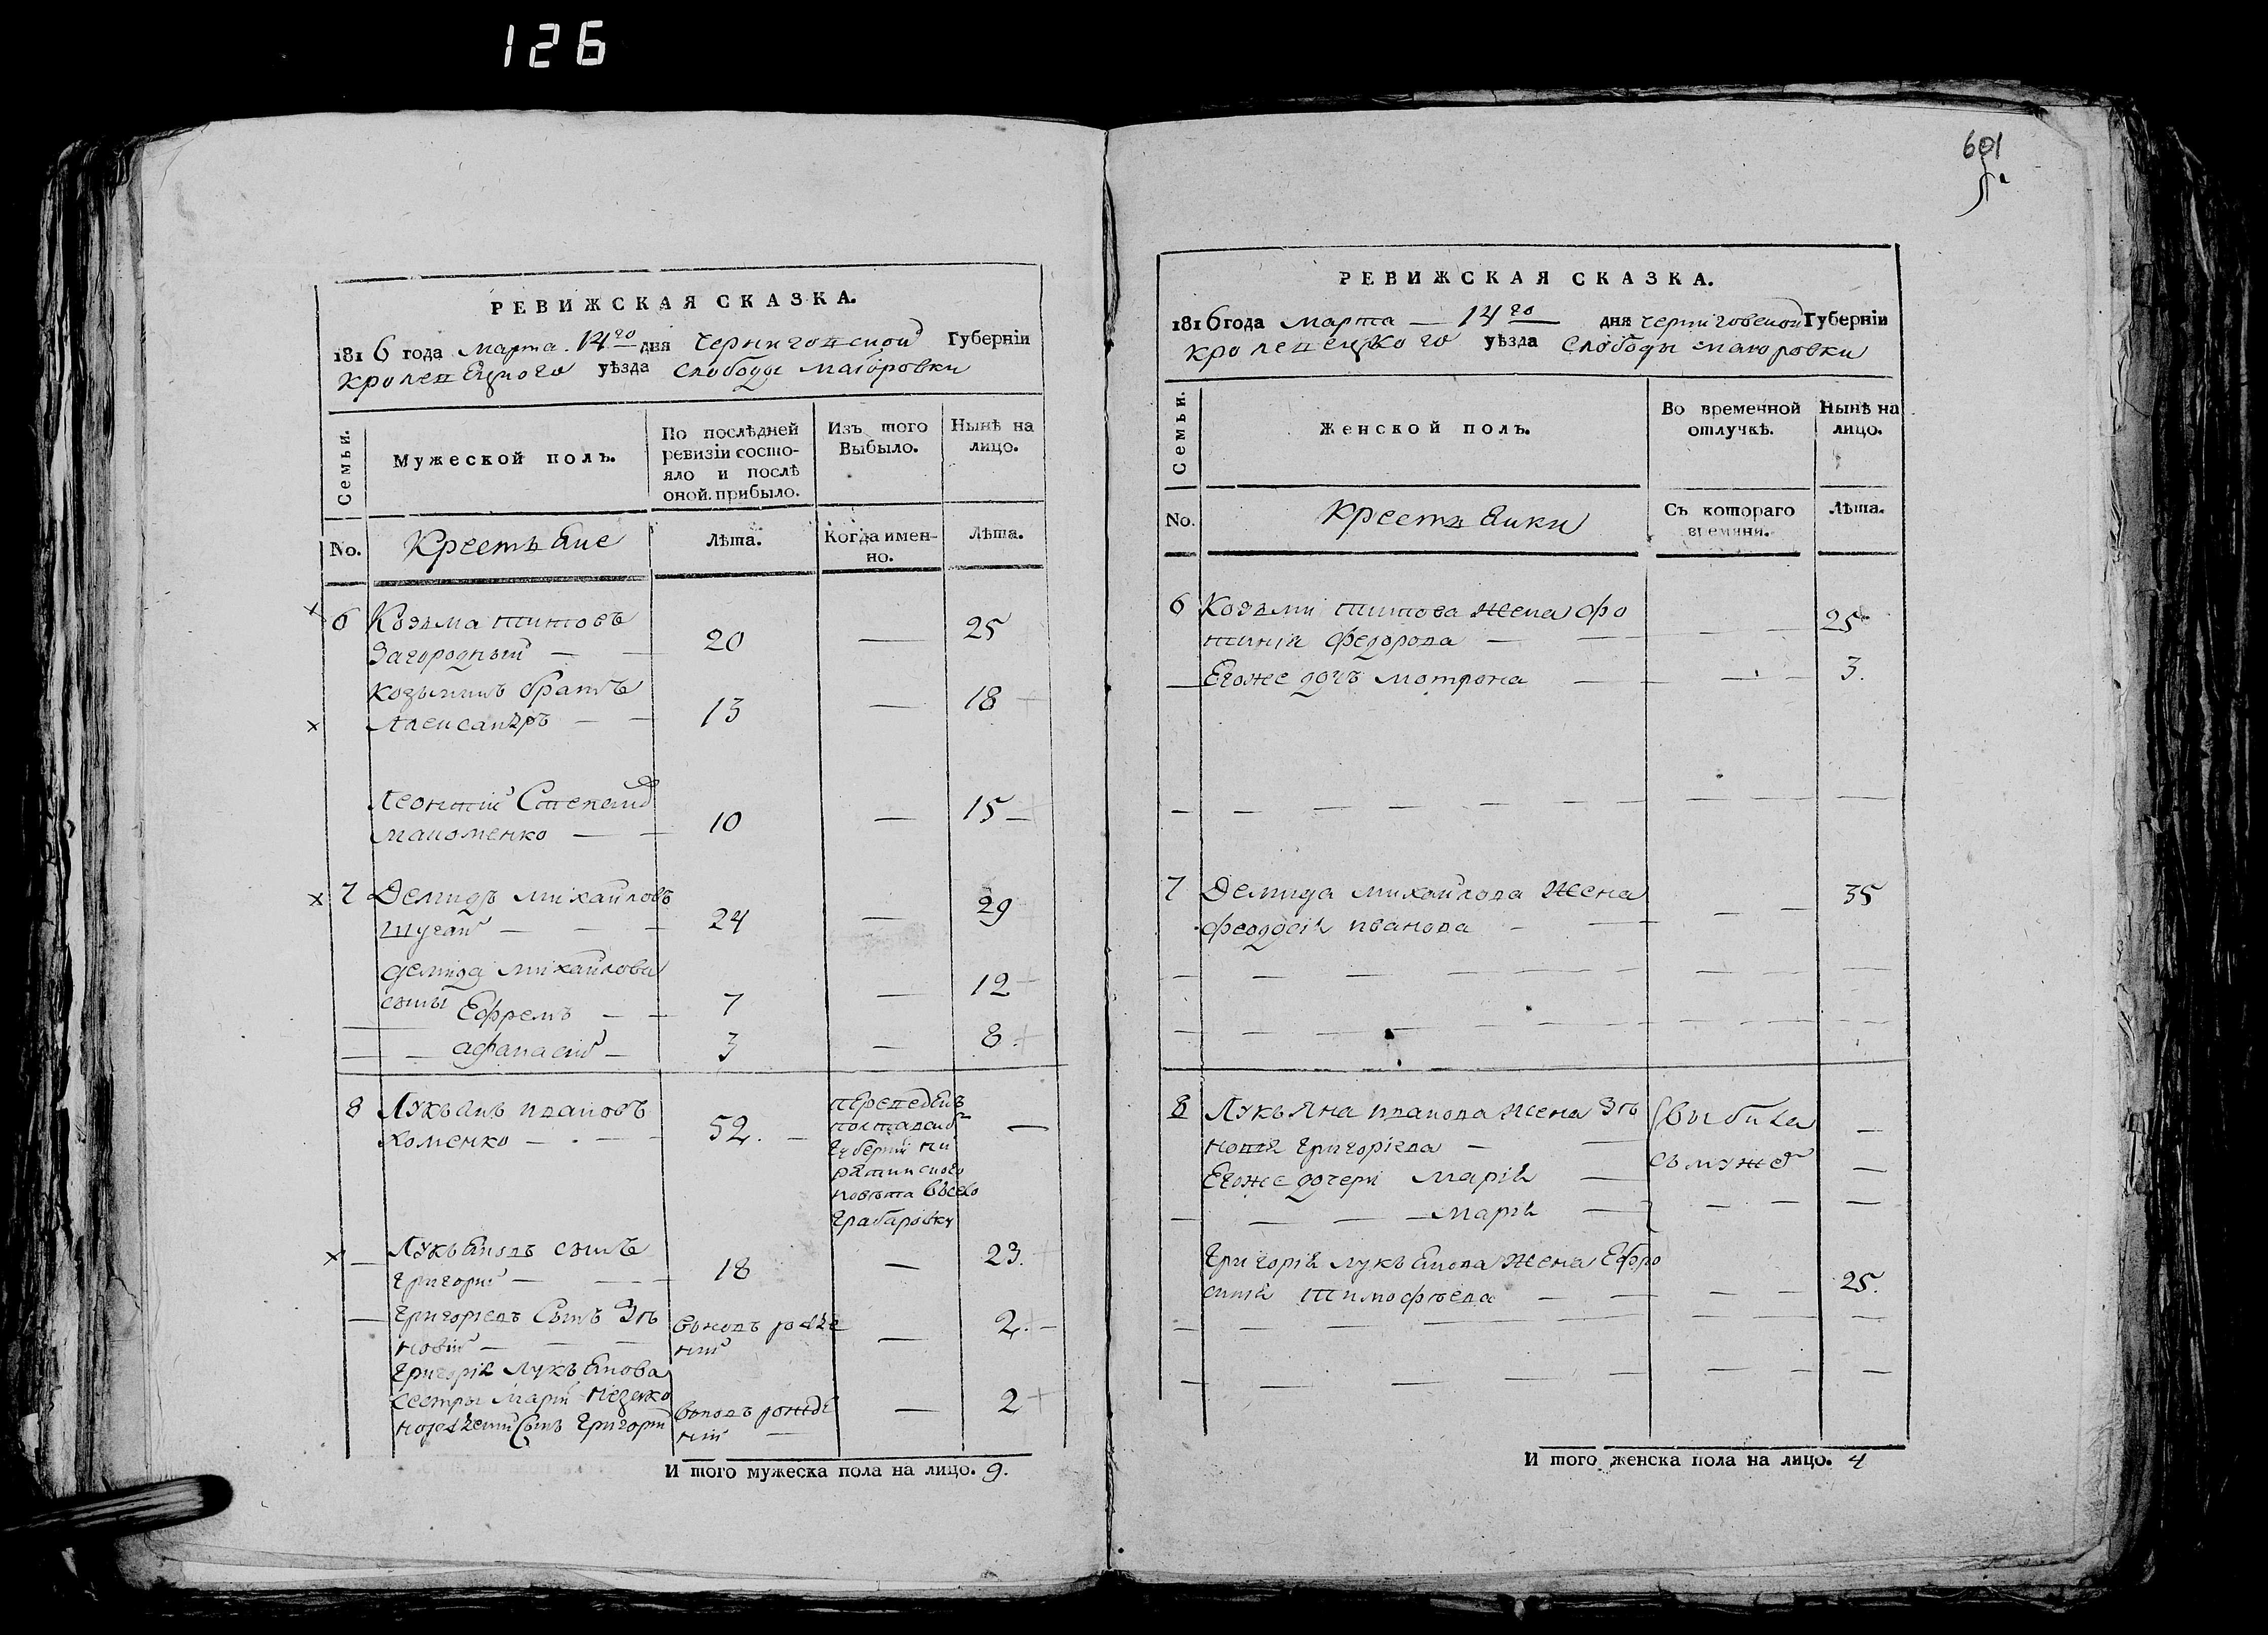 126
РЕВИЖСКАЯ СКАЗКА.
1816 года марта 14го дня Черниговской Губерніи
Кролевецкого уѣзда слободы маіоровки
Семьи.
Мужеской полъ.
По послѣдней ревизіи состояло и послѣ оной прибыло.
Изъ того Выбыло.
Нынѣ на лицо.
No.
Крестьяне
Лѣта.
Когда именно.
Лѣта.
6 Козьма титовъ
Загородный — — 20 — 25
козьминъ братъ
Александръ — — 13 — 18
Леонтий Степанов
мапоменко — — 10 — 15
7 Демидъ михайловъ
шугай — — — 24 — 29
демида михайлова
сыны Ефремъ — — 7 — 12
— — афанасий — 3 — 8
8 Лукьянъ ивановъ
хоменко — — — 52. — —
переведенъ
полтавской
губернии пи
рятинского
повѣта въсело
грабаровку
— Лукьяновъ сынъ
григорий — — — 18 — 23.
— григориевъ Сынъ Зѣ
новий — — —
вновь рожде
ний — 2.
григорія лукьянова
сестры марии незако
норожденний Сынъ григорий
вновь рожде
ний — 2
И того мужеска пола на лицо. 9.
601
РЕВИЖСКАЯ СКАЗКА.
1816 года марта — 14го дня черниговской Губерніи
кролевецкого уѣзда слободы маюровки
Семьи.
Женской полъ.
Во временной отлучкѣ.
Нынѣ на лицо.
No.
крестьянки
Съ котораго времяни.
Лѣта.
6 Козьми титова жена фо
тинія федорова — — — — 25
— Егоже дочъ мотрона — — — — 3.
7 Демида михайлова жена
феодосія иванова — — — — 35
8 Лукьяна иванова жена Зѣ
новія григоріева — — выбила —
Егоже дочери Марія — съ мужем —
— — — марія — — — —
григорія лукьянова жена Ефро
синія тимофѣева — — — — 25.
И того женска пола на лицо. 4